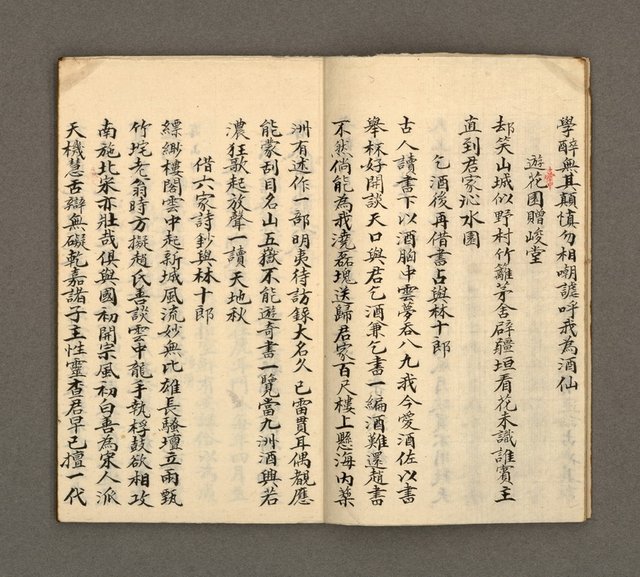 學醉無其顛慎勿相嘲謔呼我為酒仙
遊花園贈峻堂
却笑山城似野村竹籬茅舍辟疆垣看花未識誰賓主
直到君家沁水園
乞酒後再借書占與林十郎
古人讀書下以酒胸中雲夢吞八九我今愛酒佐以書
舉杯好開談天口與君乞酒兼乞書一編酒難還趙書
不然倘能為我澆磊塊送歸君家百尺樓上懸海內藥
洲有述作一部明夷待訪錄大名久已雷貫耳偶覩應
能蒙刮目名山五嶽不能遊奇書一覽當九洲酒興若
濃狂歌起放聲一讀天地秋
借六家詩鈔與林十郎
縹緲樓閣雲中起新城風流妙無比雄長騷壇立兩甄
竹垞老翁時方擬趙氏善談雲中龍手執桴鼓欲相攻
南施北宋亦壯哉俱與國初開宗風初白善為宋人派
天機慧舌辯無礙乾嘉諸子主性靈查君早已擅一代